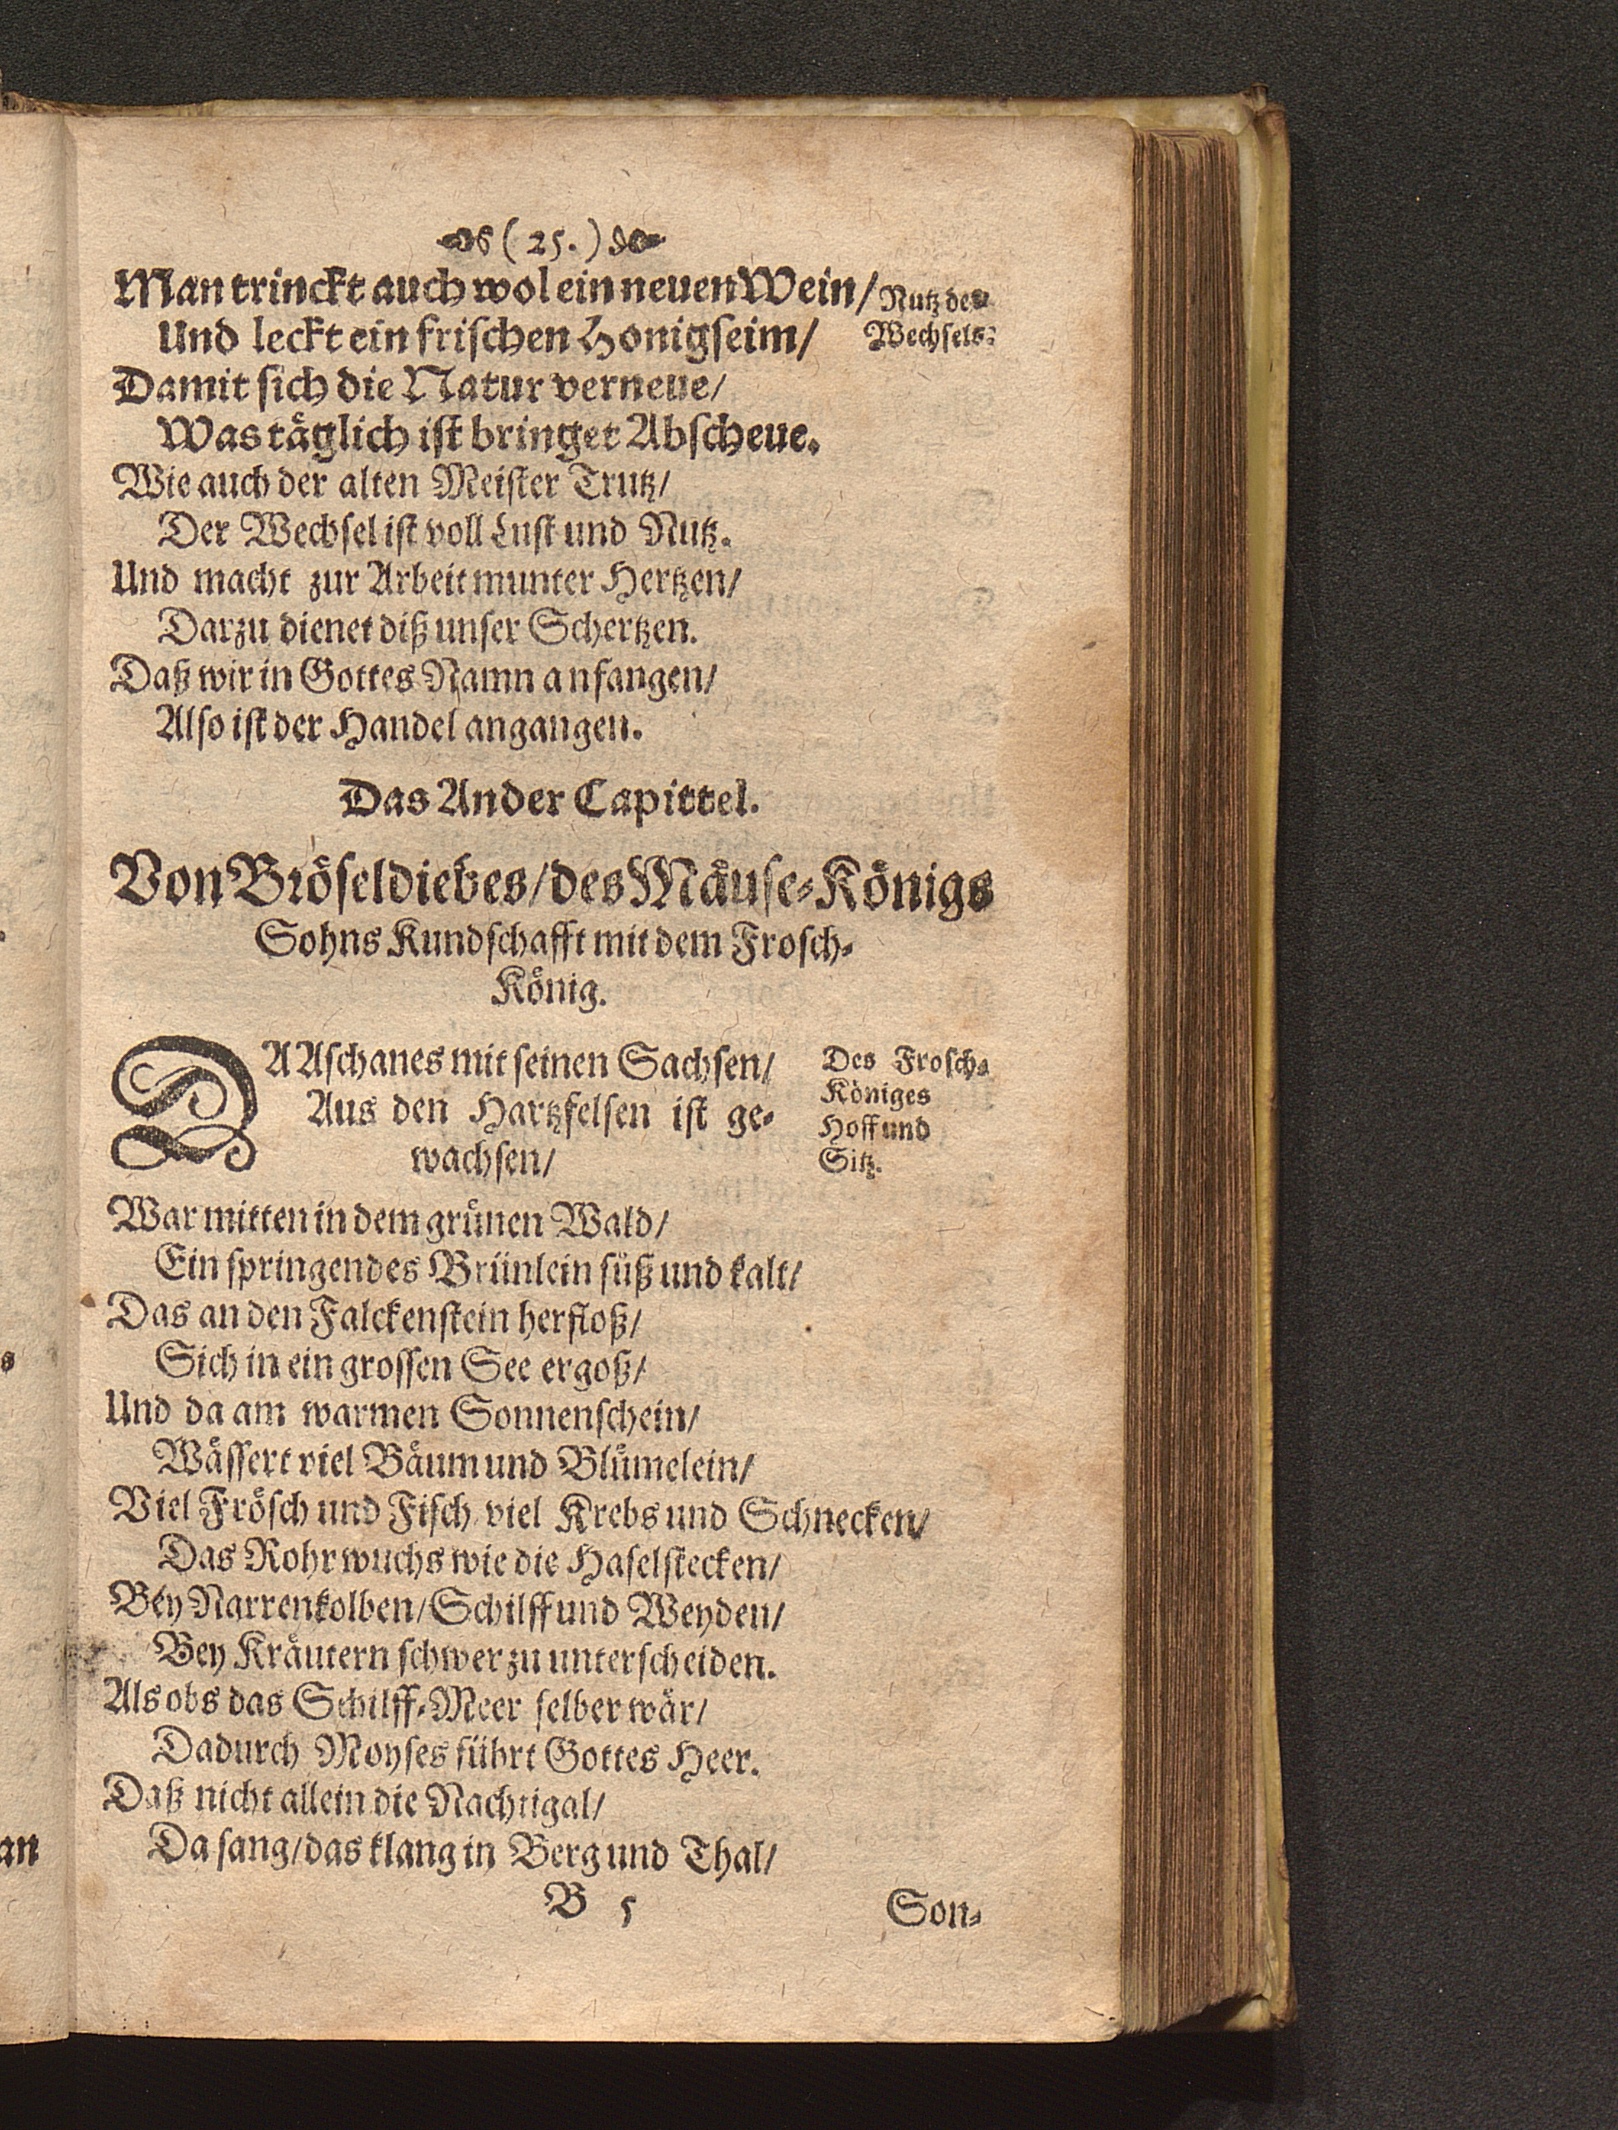 (25.)
Man trinckt auch wol ein neuen Wein/
Nutz des
Und leckt ein frischen Honigseim/
Wechsels.
Damit sich die Natur verneue/
Was täglich ist bringet Abscheue.
Wie auch der alten Meister Trutz/
Der Wechsel ist voll Lust und Nutz.
Und macht zur Arbeit munter Hertzen/
Darzu dienet diß unser Schertzen.
Daß wir in Gottes Namn anfangen/
Also ist der Handel angangen.
Das Ander Capittel.
Von Bröseldiebes/ des Mäuse-Königs
Sohns Kundschafft mit dem Frosch-
König.
DA Aschanes mit seinen Sachsen/
Aus den Hartzfelsen ist ge-
wachsen/
Des Frosch-
Königes
Hoff und
Sitz.
War mitten in dem grünen Wald/
Ein springendes Brünlein süß und kalt/
Das an den Falckenstein herfloß/
Sich in ein grossen See ergoß/
Und da am warmen Sonnenschein/
Wässert viel Bäum und Blümelein/
Viel Frösch und Fisch viel Krebs und Schnecken/
Das Rohr wuchs wie die Haselstecken/
Bey Narrenkolben/ Schilff und Weyden/
Bey Kräutern schwer zu unterscheiden.
Als obs das Schilff-Meer selber wär/
Dadurch Moyses führt Gottes Heer.
Daß nicht allein die Nachtigal/
Da sang/ das klang in Berg und Thal/
B 5
Son-
an